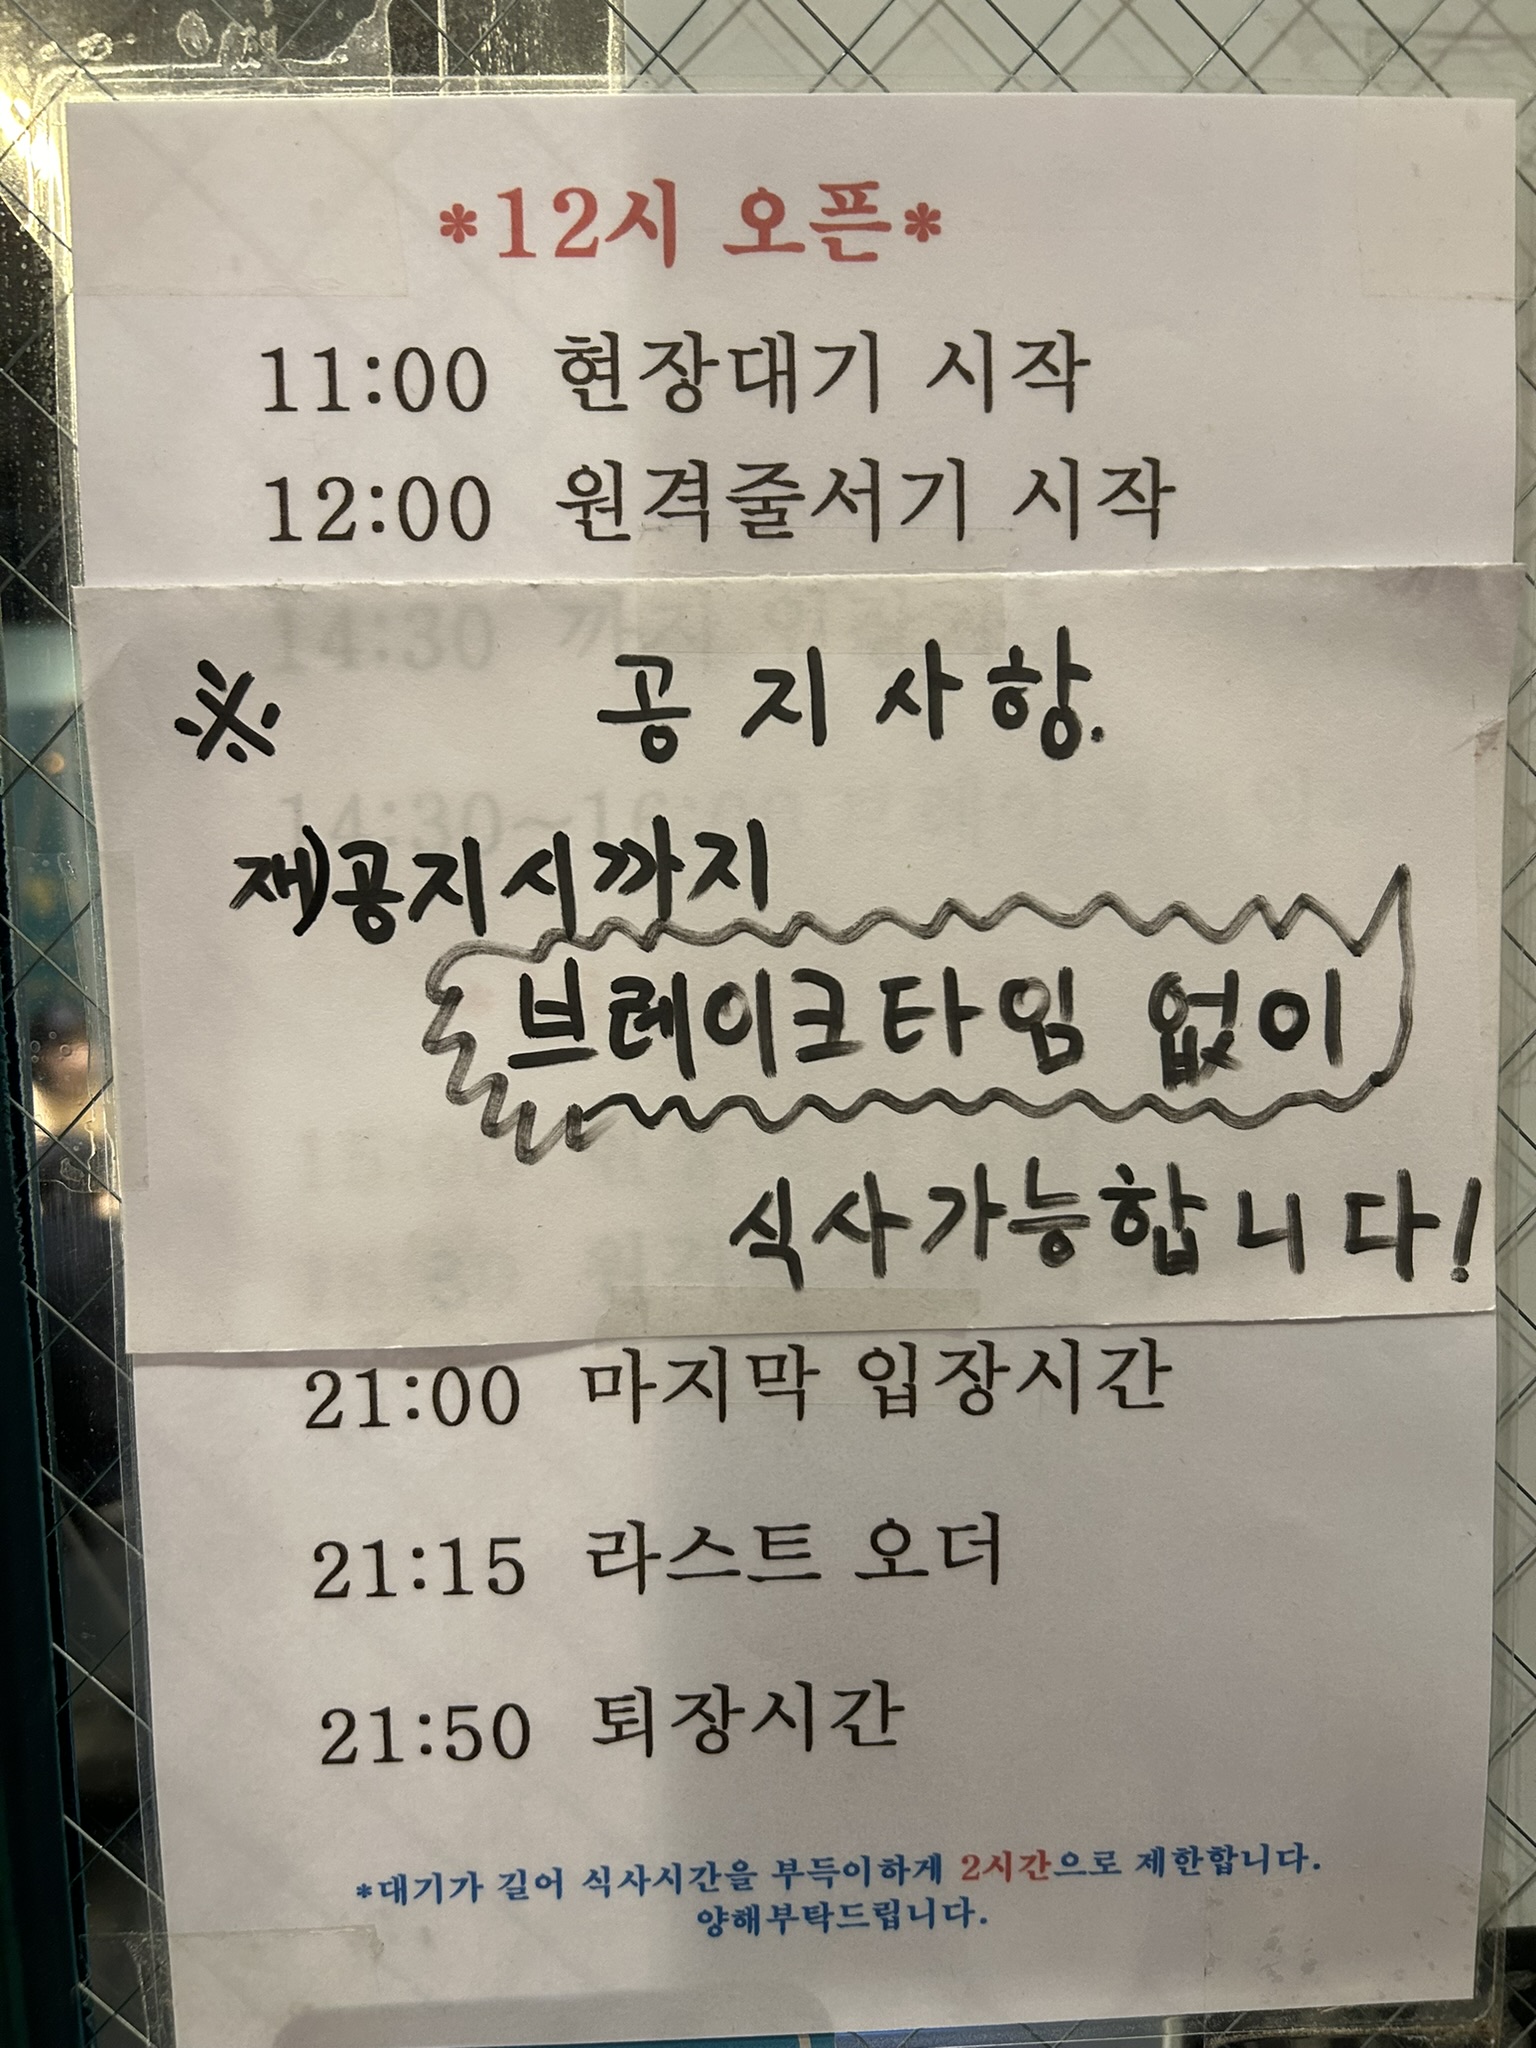 *12시 오픈*
11:00 현장대기 시작
12:00 원격줄서기 시작
14:30 까지
※ 공지사항.
14:30~16:00
재)공지시까지
브레이크타임 없이
식사가능합니다!
21:00 마지막 입장시간
21:15 라스트 오더
21:50 퇴장시간
*대기가 길어 식사시간을 부득이하게 2시간으로 제한합니다.
양해부탁드립니다.